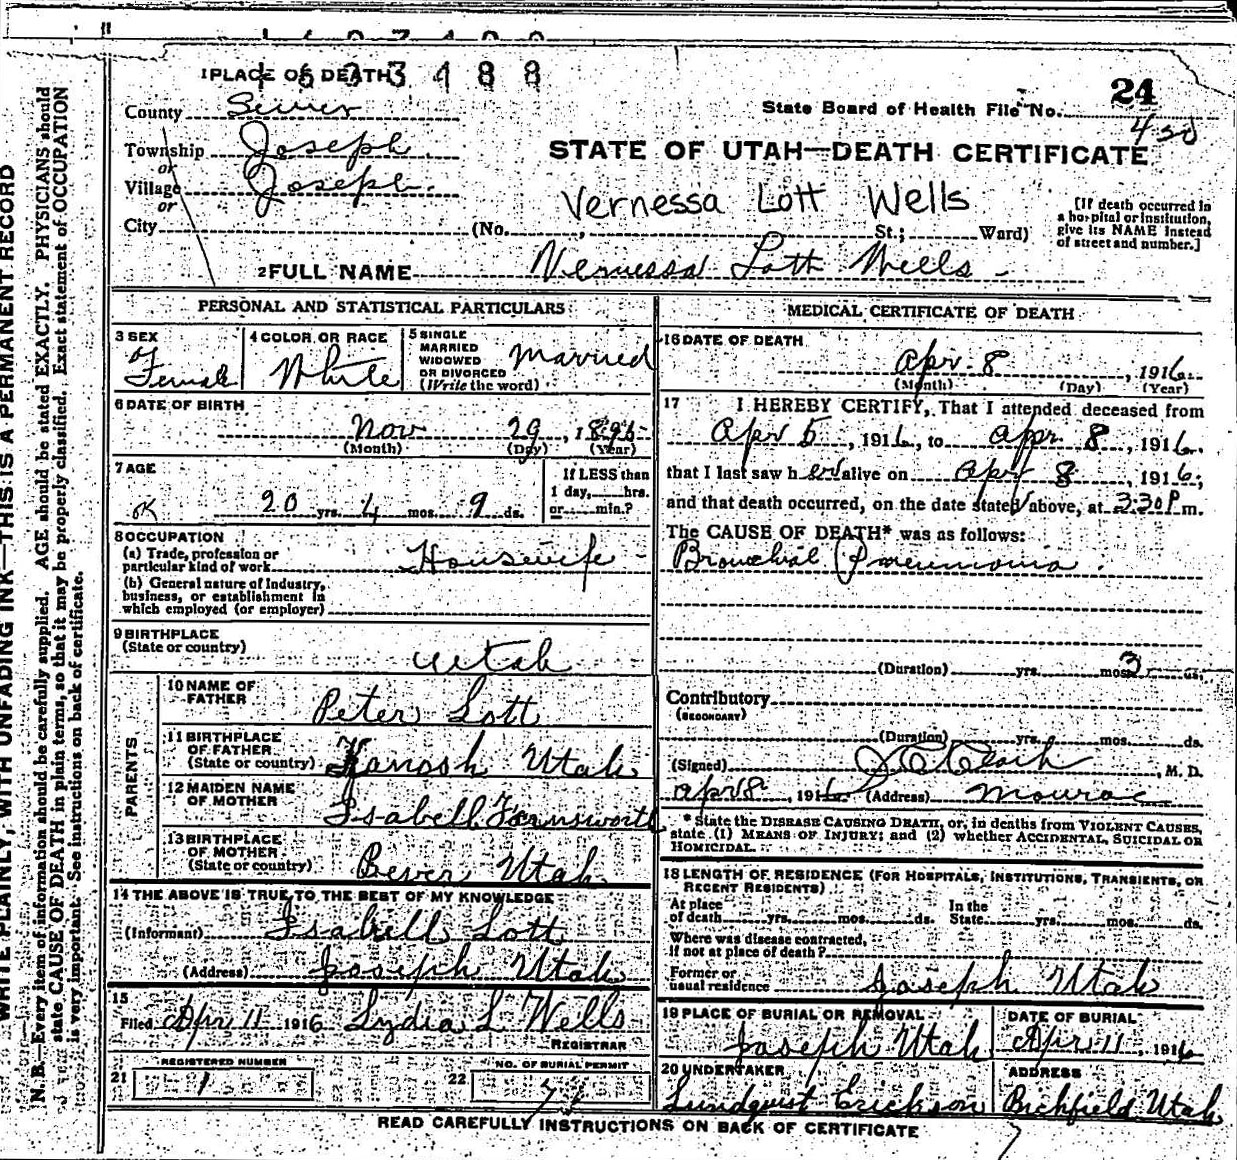 1633488
1 PLACE OF DEATH
24
County Sevier
State Board of Health File No. 450
Township Joseph
or
STATE OF UTAH—DEATH CERTIFICATE
Village Joseph
or
Vernessa Lott Wells
City (No. , St.; Ward)
[If death occurred in a hospital or institution, give its NAME instead of street and number.]
2 FULL NAME Vernessa Lott Wells
PERSONAL AND STATISTICAL PARTICULARS
3 SEX
Female
4 COLOR OR RACE
White
5 SINGLE
MARRIED
WIDOWED
OR DIVORCED
(Write the word)
Married
6 DATE OF BIRTH
Nov 29, 1895
(Month) (Day) (Year)
7 AGE
If LESS than
1 day, hrs.
or min.?
OK 20 yrs. 4 mos. 9 ds.
8 OCCUPATION
(a) Trade, profession or
particular kind of work Housewife
(b) General nature of Industry,
business, or establishment in
which employed (or employer)
9 BIRTHPLACE
(State or country) Utah
PARENTS
10 NAME OF
FATHER Peter Lott
11 BIRTHPLACE
OF FATHER
(State or country) Kanosh Utah
12 MAIDEN NAME
OF MOTHER Isabell Farnsworth
13 BIRTHPLACE
OF MOTHER
(State or country) Bever Utah
14 THE ABOVE IS TRUE TO THE BEST OF MY KNOWLEDGE
(Informant) Isabell Lott
(Address) Joseph Utah
15
Filed Apr 11 1916 Lydia L Wells
REGISTRAR
REGISTERED NUMBER
21 1
NO. OF BURIAL PERMIT
22
MEDICAL CERTIFICATE OF DEATH
16 DATE OF DEATH
Apr 8, 1916
(Month) (Day) (Year)
17 I HEREBY CERTIFY, That I attended deceased from
Apr 5, 1916, to Apr 8, 1916.
that I last saw her alive on Apr 8, 1916;
and that death occurred, on the date stated above, at 3.30 P m.
The CAUSE OF DEATH* was as follows:
Bronchial Pneumonia.
(Duration) yrs. mos. 3 ds.
Contributory
(SECONDARY)
(Duration) yrs. mos. ds.
(Signed) , M. D.
Apr 8, 1916 (Address) Monroe
* State the DISEASE CAUSING DEATH, or, in deaths from VIOLENT CAUSES,
state (1) MEANS OF INJURY; and (2) whether ACCIDENTAL, SUICIDAL OR
HOMICIDAL.
18 LENGTH OF RESIDENCE (FOR HOSPITALS, INSTITUTIONS, TRANSIENTS, OR
RECENT RESIDENTS)
At place
of death yrs. mos. ds.
In the
State yrs. mos. ds.
Where was disease contracted,
If not at place of death?
Former or
usual residence Joseph Utah
19 PLACE OF BURIAL OR REMOVAL
Joseph Utah
DATE OF BURIAL
Apr 11, 1916
20 UNDERTAKER
Lundquist Erickson
ADDRESS
Richfield Utah
READ CAREFULLY INSTRUCTIONS ON BACK OF CERTIFICATE
WRITE PLAINLY, WITH UNFADING INK—THIS IS A PERMANENT RECORD
N. B.—Every item of information should be carefully supplied. AGE should be stated EXACTLY. PHYSICIANS should
state CAUSE OF DEATH in plain terms, so that it may be properly classified. Exact statement of OCCUPATION
is very important. See instructions on back of certificate.